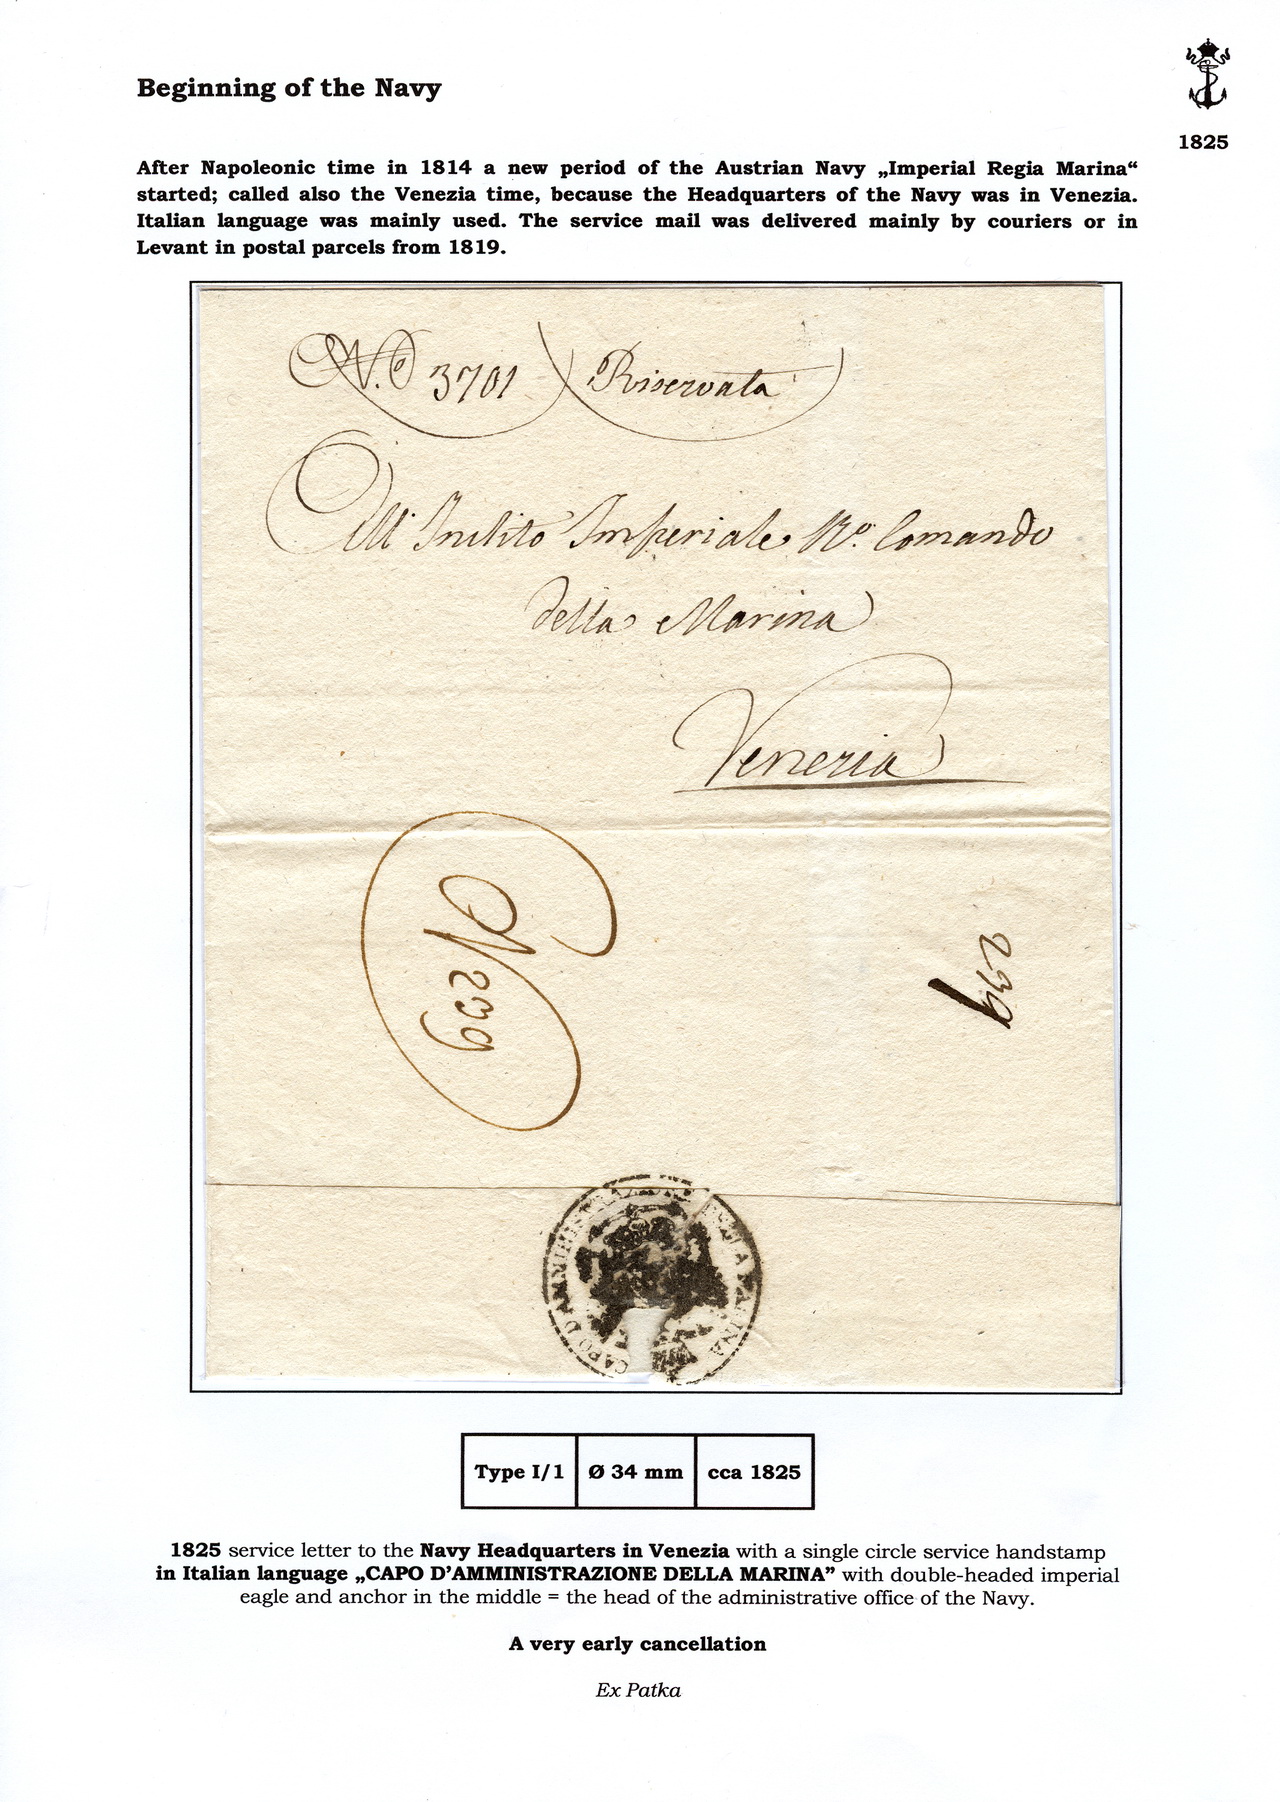 Beginning of the Navy
1825
After Napoleonic time in 1814 a new period of the Austrian Navy „Imperial Regia Marina“
started; called also the Venezia time, because the Headquarters of the Navy was in Venezia.
Italian language was mainly used. The service mail was delivered mainly by couriers or in
Levant in postal parcels from 1819.
N.o 3701 Riservata
All' Inclito Imperiale Ro. Comando
della Marina
Venezia
N 239
239
CAPO D'AMMINISTRAZIONE DELLA MARINA
Type I/1 Ø 34 mm cca 1825
1825 service letter to the Navy Headquarters in Venezia with a single circle service handstamp
in Italian language „CAPO D’AMMINISTRAZIONE DELLA MARINA” with double-headed imperial
eagle and anchor in the middle = the head of the administrative office of the Navy.
A very early cancellation
Ex Patka